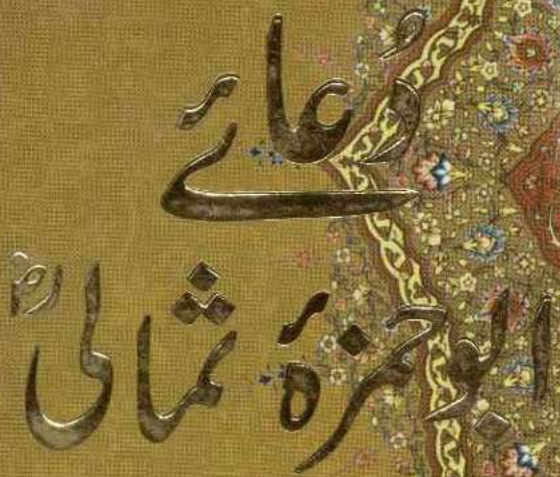 دُعائے
ابوحمزۂ ثمالیؒ